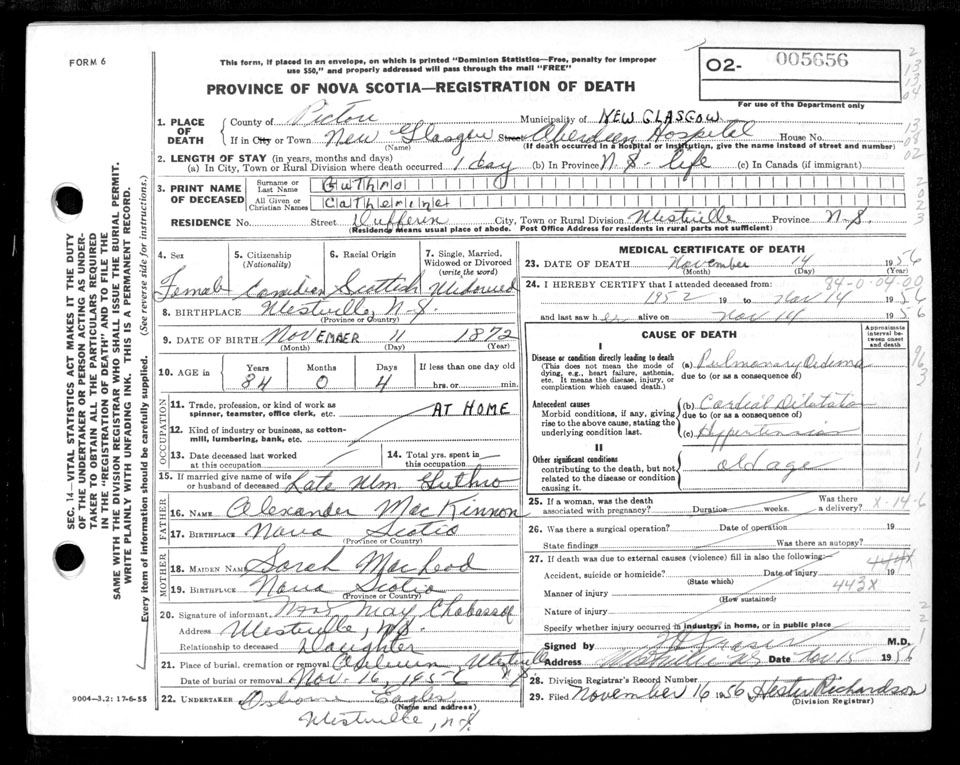 FORM 6
This form, if placed in an envelope, on which is printed "Dominion Statistics—Free, penalty for improper
use $50," and properly addressed will pass through the mail "FREE"
O2- 005656
For use of the Department only
PROVINCE OF NOVA SCOTIA—REGISTRATION OF DEATH
1. PLACE OF DEATH
County of Pictou Municipality of NEW GLASGOW
If in City or Town New Glasgow Street Aberdeen Hospital House No.
(Name) (If death occurred in a Hospital or institution, give the name instead of street and number)
2. LENGTH OF STAY (in years, months and days)
(a) In City, Town or Rural Division where death occurred 1 day (b) In Province N.S. life (c) In Canada (if immigrant)
3. PRINT NAME OF DECEASED
Surname or Last Name Guthro
All Given or Christian Names Catherine
RESIDENCE No. Street Dufferin City, Town or Rural Division Westville Province N.S.
(Residence means usual place of abode. Post Office Address for residents in rural parts not sufficient)
4. Sex
Female
5. Citizenship (Nationality)
Canadian
6. Racial Origin
Scottish
7. Single, Married, Widowed or Divorced (write the word)
Widowed
8. BIRTHPLACE Westville, N.S.
(Province or Country)
9. DATE OF BIRTH NOVEMBER 11 1872
(Month) (Day) (Year)
10. AGE in
Years 84
Months 0
Days 4
If less than one day old
hrs. or min.
OCCUPATION
11. Trade, profession, or kind of work as spinner, teamster, office clerk, etc. AT HOME
12. Kind of industry or business, as cotton-mill, lumbering, bank, etc.
13. Date deceased last worked at this occupation
14. Total yrs. spent in this occupation
15. If married give name of wife or husband of deceased Late Wm. Guthro
FATHER
16. NAME Alexander MacKinnon
17. BIRTHPLACE Nova Scotia
(Province or Country)
MOTHER
18. MAIDEN NAME Sarah MacLeod
19. BIRTHPLACE Nova Scotia
(Province or Country)
20. Signature of informant Mrs May
Address Westville, N.S.
Relationship to deceased Daughter
21. Place of burial, cremation or removal Westville N.S.
Date of burial or removal Nov. 16, 1956
22. UNDERTAKER Osborne Eagles
(Name and address)
Westville, N.S.
MEDICAL CERTIFICATE OF DEATH
23. DATE OF DEATH November 14 1956
(Month) (Day) (Year)
24. I HEREBY CERTIFY that I attended deceased from: 84-0-04-00
1952 19 to Nov 14 1956
and last saw her alive on Nov 14 1956
CAUSE OF DEATH
Approximate interval between onset and death
I
Disease or condition directly leading to death
(This does not mean the mode of dying, e.g., heart failure, asthenia, etc. It means the disease, injury, or complication which caused death.)
(a) Pulmonary Oedema
due to (or as a consequence of)
Antecedent causes
Morbid conditions, if any, giving rise to the above cause, stating the underlying condition last.
(b) Cardial Dilatation
due to (or as a consequence of)
(c) Hypertension
II
Other significant conditions
contributing to the death, but not related to the disease or condition causing it.
old age
25. If a woman, was the death associated with pregnancy? Duration weeks. Was there a delivery? X-14-6
26. Was there a surgical operation? Date of operation 19
State findings Was there an autopsy?
27. If death was due to external causes (violence) fill in also the following:
Accident, suicide or homicide? Date of injury 19
(State which)
Manner of injury 443X
(How sustained)
Nature of injury
Specify whether injury occurred in industry, in home, or in public place
Signed by M.D.
Address Westville NS Date Nov 15 1956
28. Division Registrar's Record Number
29. Filed November 16 1956 Hester Richardson
(Division Registrar)
SEC. 14—VITAL STATISTICS ACT MAKES IT THE DUTY
OF THE UNDERTAKER OR PERSON ACTING AS UNDER-
TAKER TO OBTAIN ALL THE PARTICULARS REQUIRED
IN THE "REGISTRATION OF DEATH" AND TO FILE THE
SAME WITH THE DIVISION REGISTRAR WHO SHALL ISSUE THE BURIAL PERMIT.
WRITE PLAINLY WITH UNFADING INK. THIS IS A PERMANENT RECORD.
Every item of information should be carefully supplied. (See reverse side for instructions.)
9004—3.2: 17-6-55